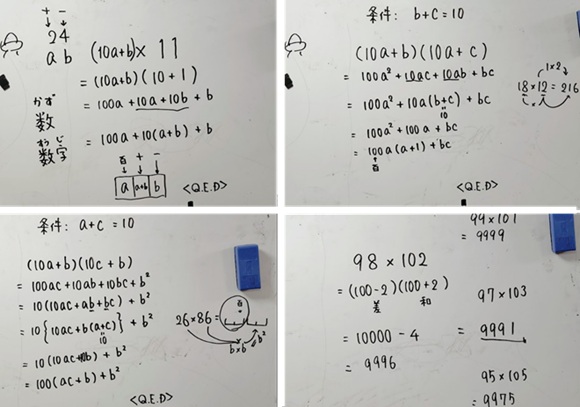 + −
24
a b
(10a+b)× 11
= (10a+b)(10+1)
= 100a + 10a+10b + b
かず
数
= 100a + 10(a+b) + b
すうじ
数字
百 + −
a a+b b
<Q.E.D>
条件: b+c=10
(10a+b)(10a+c)
= 100a²+10ac+10ab+bc
= 100a²+10a(b+c)+bc
10
= 100a²+100a+bc
= 100a(a+1)+bc
百
1×2
18×12=216
<Q.E.D>
条件: a+c=10
(10a+b)(10c+b)
= 100ac+10ab+10bc+b²
= 10(10ac+ab+bc)+b²
= 10{10ac+b(a+c)}+b²
10
= 10(10ac+10b)+b²
= 100(ac+b)+b²
26×86=
百
b×b
b²
<Q.E.D>
99×101
= 9999
98×102
= (100-2)(100+2)
差 和
= 10000-4
= 9996
97×103
= 9991
95×105
= 9975